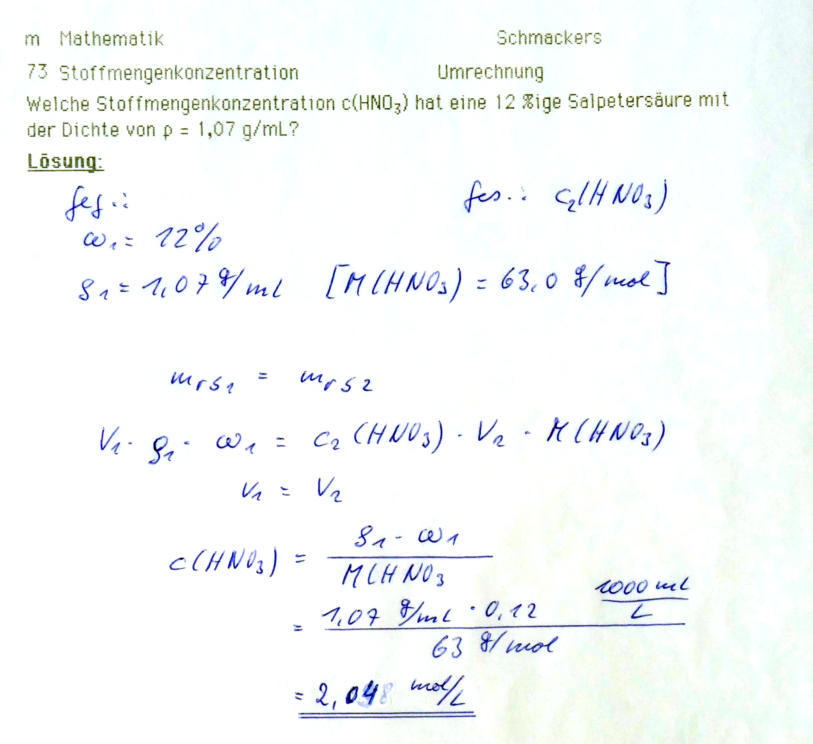 m Mathematik Schmackers
73 Stoffmengenkonzentration Umrechnung
Welche Stoffmengenkonzentration c(HNO₃) hat eine 12 %ige Salpetersäure mit
der Dichte von ρ = 1,07 g/mL?
Lösung:
geg.: ges.: c₂(HNO₃)
ω₁ = 12%
ρ₁ = 1,07 g/mL [M(HNO₃) = 63,0 g/mol]
m rS1 = m rS2
V₁ · ρ₁ · ω₁ = c₂(HNO₃) · V₂ · M(HNO₃)
V₁ = V₂
c(HNO₃) = ρ₁ · ω₁
M(HNO₃
= 1,07 g/mL · 0,12 1000 mL / L
63 g/mol
= 2,048 mol/L